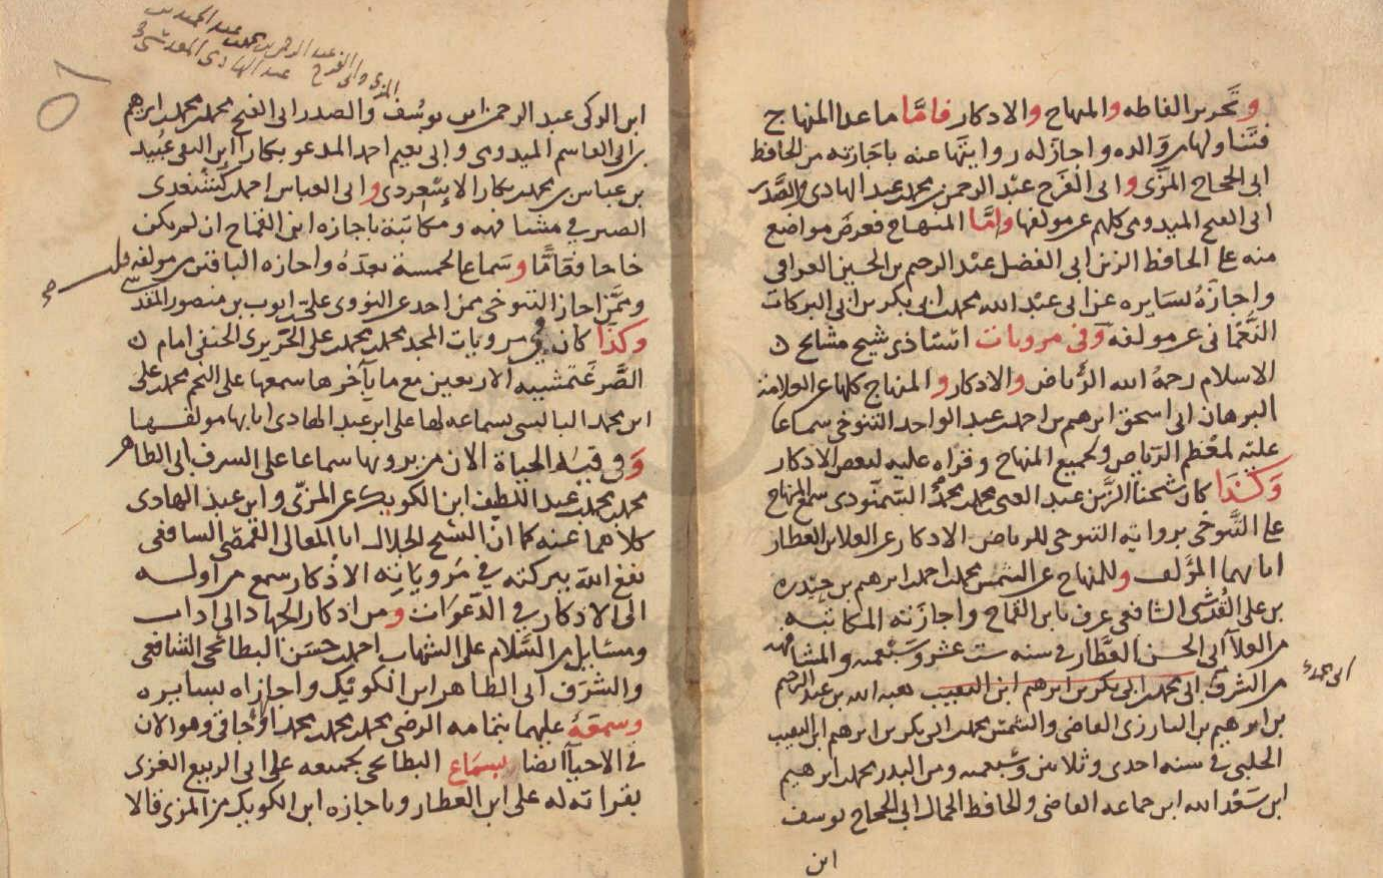 وتحرير الفاظه والمنهاج والاذكار فاما ماعدا المنهاج
فتناولها من والده واجاز له روايتها عنه باجازته من الحافظ
ابى الحجاج المزى وابى الفرج عبد الرحمن بن محمد بن عبد الهادى والصدر
ابى الفتح الميدومى كلهم عن مولفها واما المنهاج فعرض مواضع
منه على الحافظ الزين ابى الفضل عبد الرحيم بن الحسين العراقى
واجازه لسايره عن ابى عبد الله محمد بن ابى بكر بن ابى البركات
النعمانى عن مولفه وفى مرويات استاذى شيخ مشايخ
الاسلام رحمه الله الرياض والاذكار والمنهاج كلها عن العلامة
البرهان ابى اسحق ابرهيم بن احمد بن عبد الواحد التنوخى سماعا
عليه لمعظم الرياض ولجميع المنهاج وقراه عليه لبعض الاذكار
وكذا كان شيخنا الزين عبد الغنى بن محمد بن محمد السمنودى سمع المنهاج
على التنوخى بروايته التنوخى للرياض الاذكار عن العلا بن العطار
انا بهما المؤلف وللمنهاج عن الشمس محمد بن احمد بن ابرهيم بن حيدره
بن على القرشى الشافعى عرف بابن القماح واجازته المكاتبه
من العلا ابى الحسن العطار فى سنه ست عشر وسبعمه والمشافهه
من الشرف ابى محمد ابى بكر بن ابرهيم ابن النقيب هبه الله بن عبد الرحيم
بن ابرهيم بن البارزى القاضى والشمس محمد بن ابى بكر بن ابرهيم ابن النقيب
الحلبى فى سنه احدى وثلاثين وسبعمه ومن البدر محمد بن ابرهيم
ابن سعد الله ابن جماعه القاضى والحافظ الجمال ابى الحجاج يوسف
ابن
ابن الزكى عبد الرحمن بن يوسف والصدر ابى الفتح محمد بن محمد بن ابرهيم
بن ابى القاسم الميدومى وابى نعيم احمد المدعو بكار ابن التقى عبيد
بن عباس بن محمد بن بكار الاسعردى وابى العباس احمد بن كشتغدى
الصيرفى مشافهه ومكاتبة باجازه ابن القماح ان لم يكن
خاصا فعاما وسماعا الخمسة بعده واجازه الباقين من مولفه قلت
وممن اجاز التنوخى ممن اخذ عن النووى على بن ايوب بن منصور المقدسى
وكذا كان فى مرويات المجد محمد بن محمد بن على الحريرى الحنفى امام
الصرغتمشيه الاربعين مع ما بآخرها سمعها على النجم محمد بن على
ابن محمد البالسى بسماعه لها على ابن عبد الهادى انا بها مولفها
وفى قيد الحياة الان من يرويها سماعا على الشرف ابى الطاهر
محمد بن محمد بن عبد اللطيف ابن الكويك عن المزى وابن عبد الهادى
كلاهما عنه كما ان الشيخ الجلال ابا المعالى القمصى الشافعى
نفع الله ببركته فى مروياته الاذكار سمع من اوله
الى الاذكار فى الدعوات ومن اذكار الجهاد الى اداب
ومسايل من السلام على الشهاب احمد بن حسن البطائحى الشافعى
والشرف ابى الطاهر ابن الكويك واجازاه بسايره
وسمعه عليهما بتمامه الرضى محمد بن محمد بن محمد الاوجاقى وهو الان
فى الاحيا ايضا بسماع البطائحى بجميعه على ابى الربيع الغزى
بقراته له على ابن العطار وباجازه ابن الكويك من المزى قالا